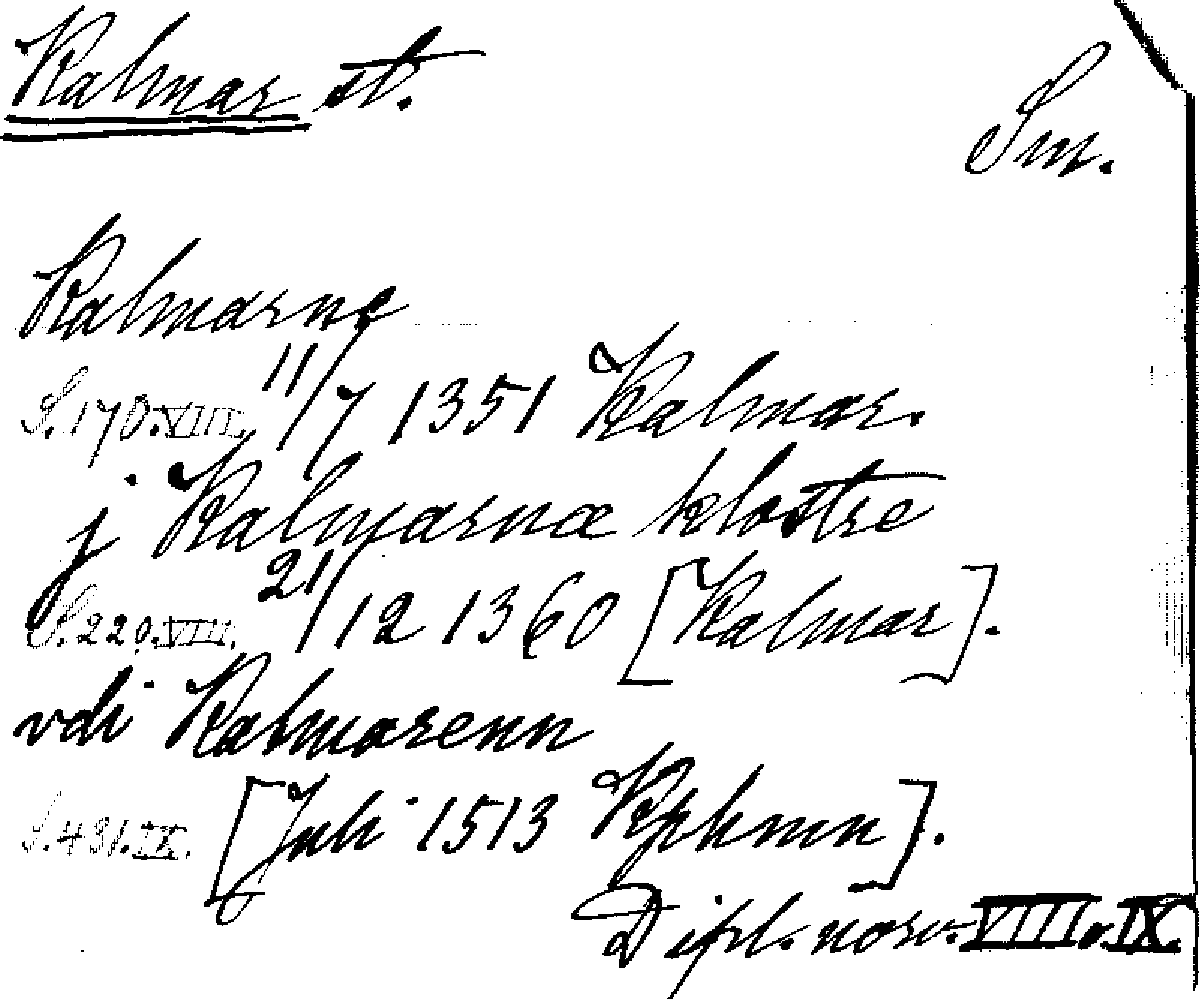 Kalmar st.
Sm.
Kalmarnę
S. 170. VIII. 11/7 1351 Kalmar.
j Kalmarnæ klostre
S. 220. VIII. 21/12 1360 [Kalmar].
vdi Kalmarenn
S. 431. IX. [Juli 1513 Kphmn].
Dipl. norv. VIII o. IX.